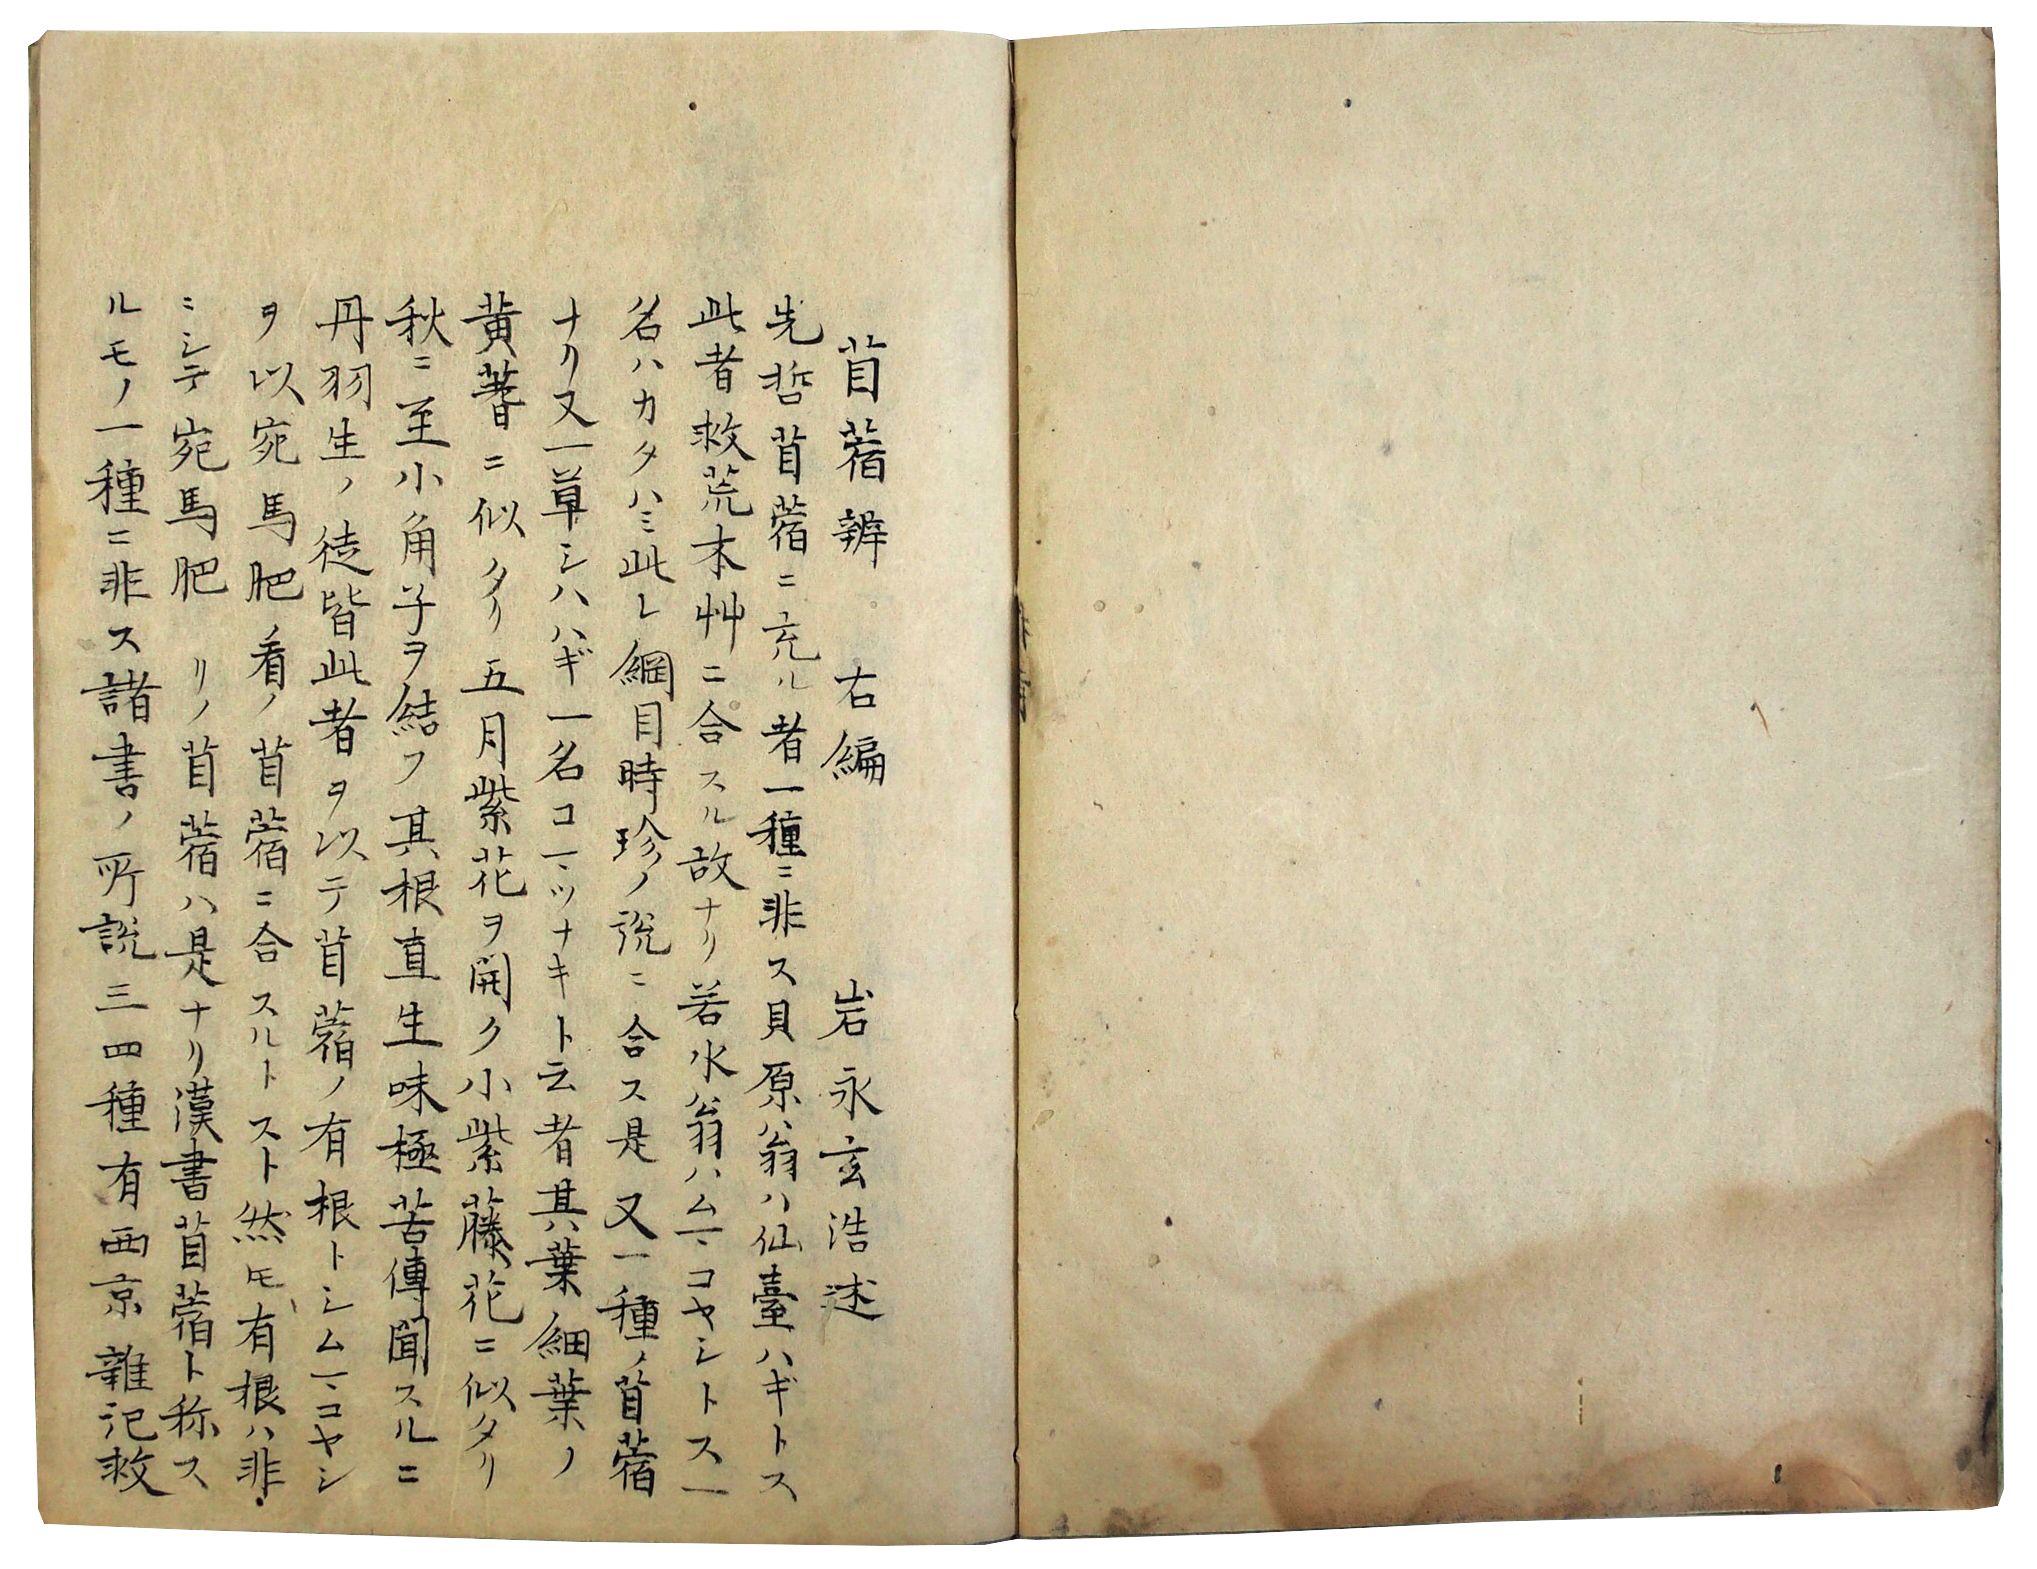 苜蓿辨 右編 岩永玄浩述
先哲苜蓿ニ充ル者一種ニ非ス貝原翁ハ仙臺ハギトス
此者救荒本艸ニ合スル故ナリ若水翁ハムマコヤシトス一
名ハカタハミ此レ綱目時珍ノ説ニ合ス是又一種ノ苜蓿
ナリ又一草シハハギ一名コマツナキト云者其葉細葉ノ
黄蓍ニ似タリ五月紫花ヲ開ク小紫藤花ニ似タリ
秋ニ至小角子ヲ結フ其根直生味極苦傳聞スルニ
丹羽生ノ徒皆此者ヲ以テ苜蓿ノ有根トシムマコヤシ
ヲ以宛馬肥ノ看ノ苜蓿ニ合スルトスト然ㇳモ有根ハ非
ニシテ宛馬肥リノ苜蓿ハ是ナリ漢書苜蓿ト称ス
ルモノ一種ニ非ス諸書ノ所説三四種有西京雜記救